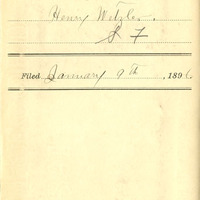 Henry Witzle.
& F
Filed January 9th, 1896.